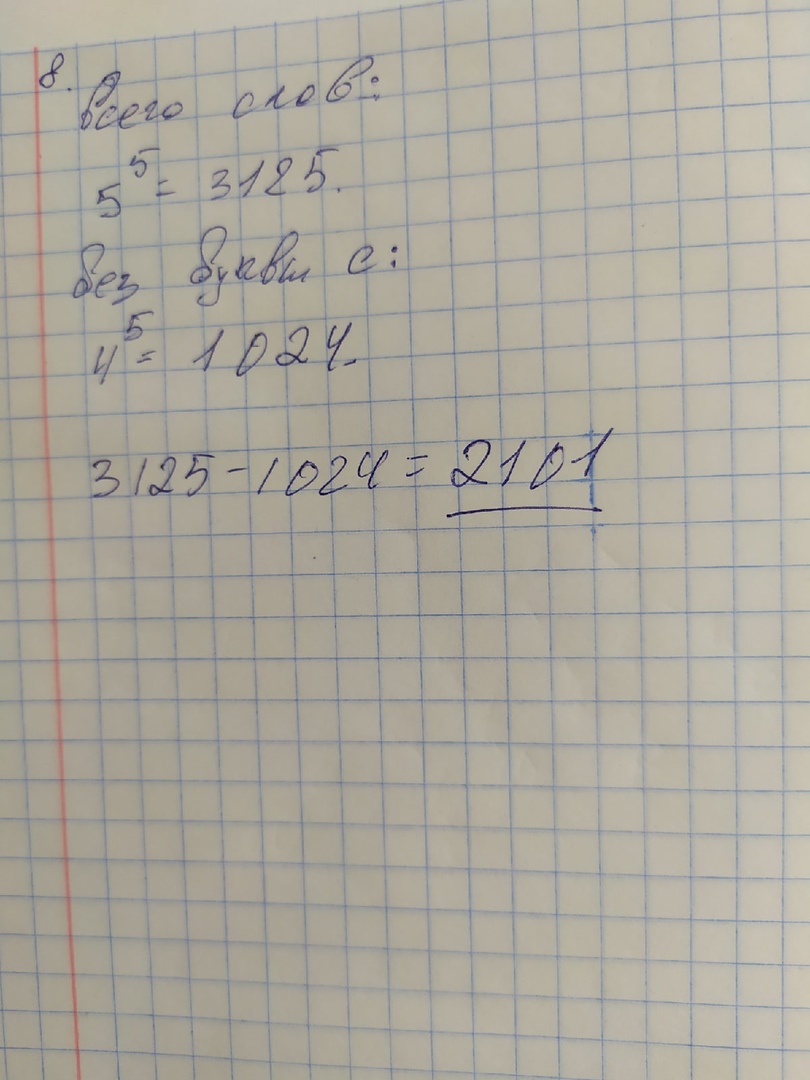 8.
Всего слов:
5⁵ = 3125.
без буквы с:
4⁵ = 1024.
3125 - 1024 = 2101